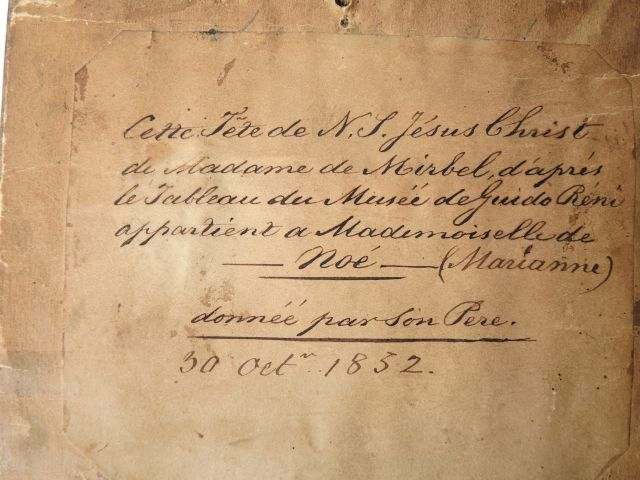 Cette Tête de N. S. Jésus Christ
de Madame de Mirbel, d'après
le Tableau du Musée de Guido Réni
appartient a Mademoiselle de
— Noé — (Marianne)
donnéé par Son Pere.
30 Oct.r 1852.